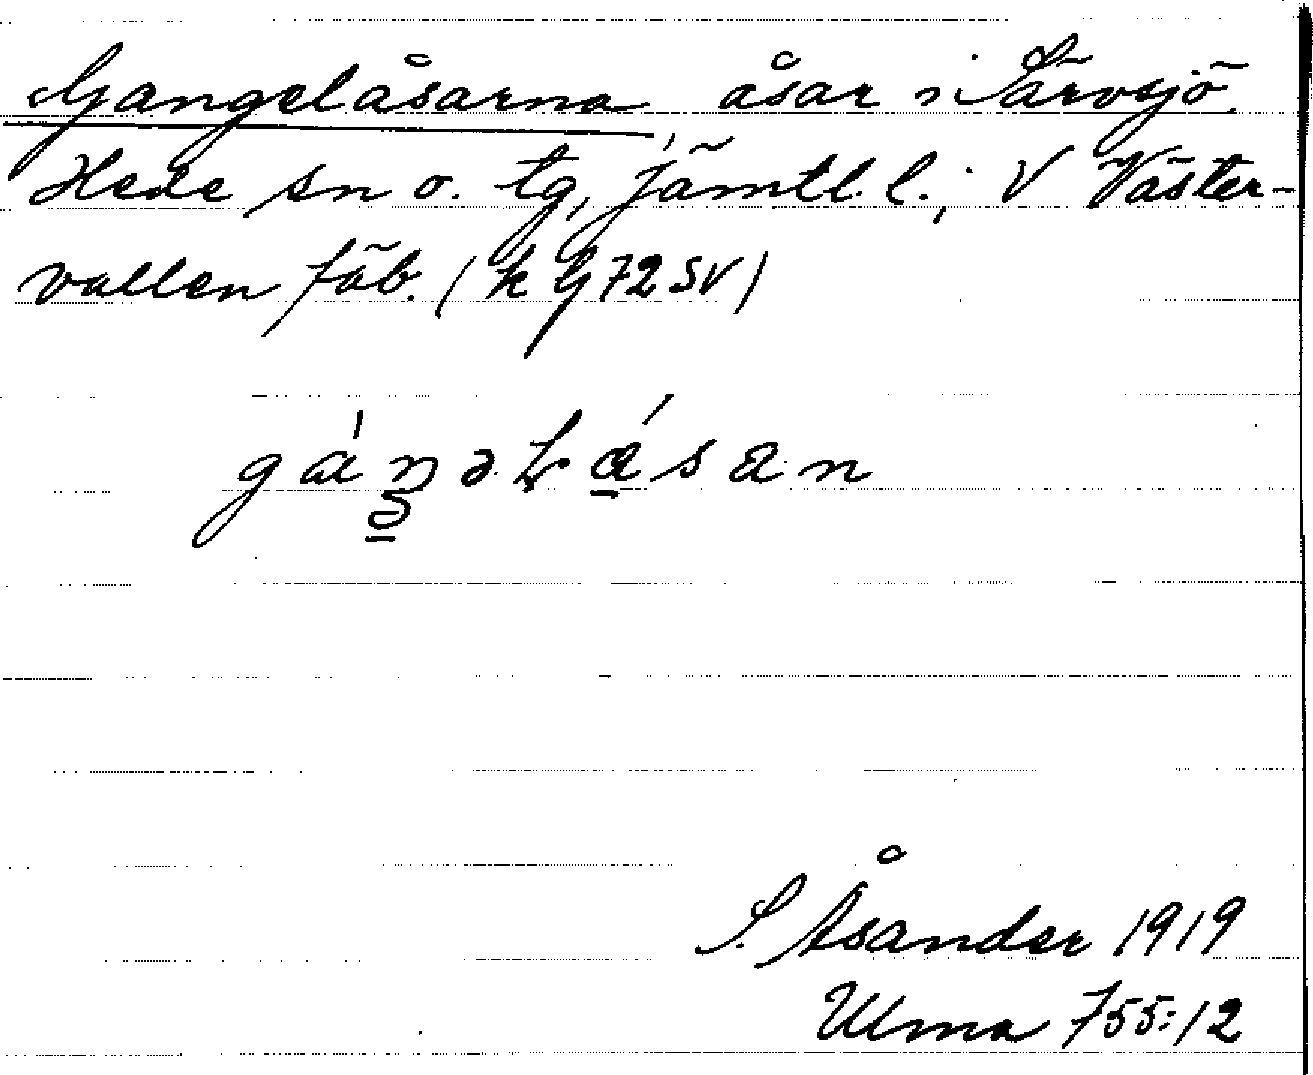 Gangelåsarna åsar i Särvsjö
Hede sn o. tg, Jämtl. l.; V Väster-
vallen fäb. (k G 72 SV)
S. Åsander 1919
Ulma 755:12